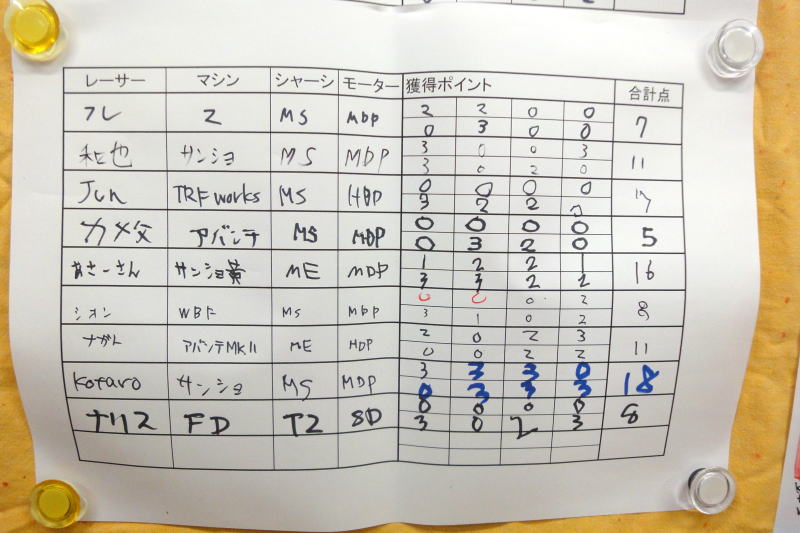 レーサー マシン シャーシ モーター 獲得ポイント 合計点
フレ Z MS MDP 2 2 0 0 7
0 3 0 0
和也 サンショ MS MDP 3 0 0 3 11
3 0 2 0
Jun TRF works MS HDP 0 0 0 0 7
3 2 2 0
カメ父 アバンテ MS MDP 0 0 0 0 5
0 3 2 0
まさーさん サンショ黄 ME MDP 1 2 2 1 16
3 3 2 2
シオン WBF MS MDP 0 0 0 2 8
3 1 0 2
ナガト アバンテMKII ME HDP 2 0 2 3 11
0 0 2 2
Kotaro サンショ MS MDP 3 3 3 0 18
0 3 3 3
ナリス FD T2 SD 0 0 0 0 8
3 0 2 3